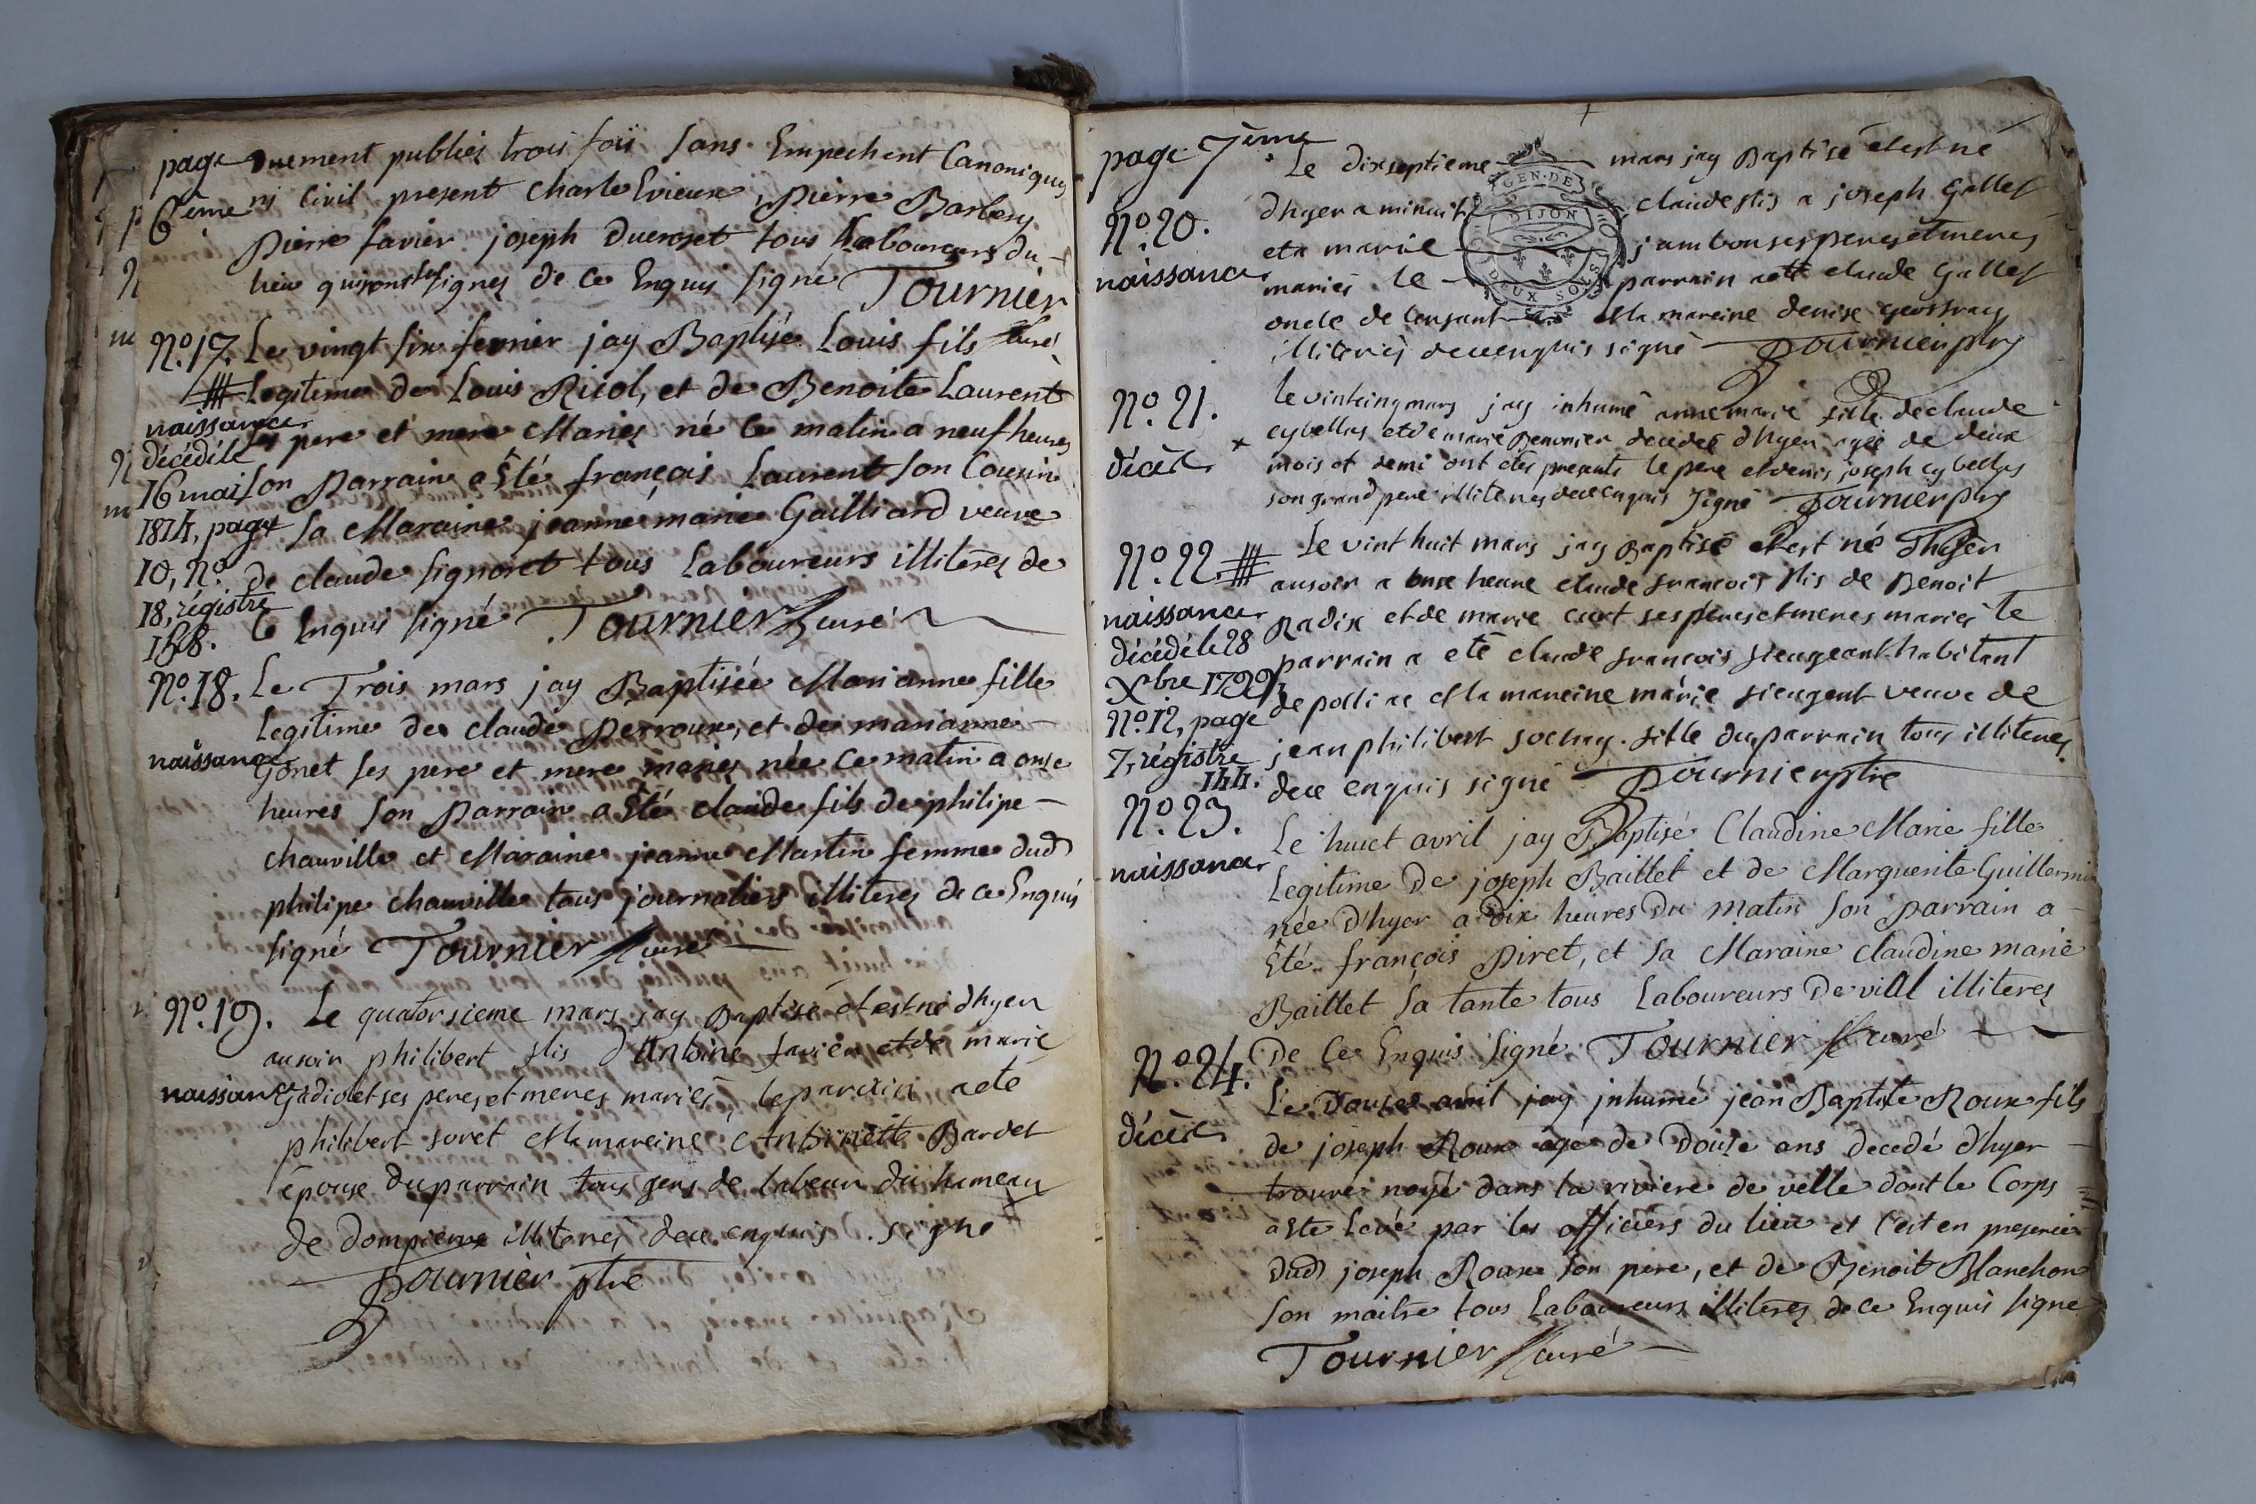 page duement publiés trois fois sans Empechent Canoniques
6ême ni Civil present charle Evieux, Pierre Barbery
Pierre favier joseph ducroset tous Laboureurs du
lieu qui signes de ce Enquis signé Tournier
curé
N.º 17. Le vingt six fevrier jay Baptisé Louis fils
Legitime de Louis Ricol, et de Benoite Laurent
naissance
ses pere et mere Mariés né ce matin a neuf heures
décédé le
16 mai son Parrain a Eté françois Laurent son Cousin
1814, page sa Maraine jeanne marie Gailliard veuve
10, nº. de claude signoret tous Laboureurs illiterés de
18, régistre
168. ce Enquis signé Tournier curé
N.º 18. Le Trois mars jay Baptisée Marianne fille
Legitime de claude Perroux, et de marianne
naissance Gonet ses pere et mere mariés née ce matin a onse
heures son Parrain a Eté claude fils de philipe
chauville et Maraine jeanne Martin femme dud
philipe chauville tous journaliers illiterés de ce Enquis
signé Tournier curé
N.º 19. Le quatorsieme mars jay Baptisé et est né dhyer
au soir philibert fils d'Antoine favier et de marie
naissance Gadiolet ses peres et meres mariés, le parrain a eté
philibert soret et la mareine Antoinette Bardet
épouse du parrain tous gens de labeur du hameau
de dompierre illiterés de ce enquis signé
Tournier ptre
page 7ème
Le dixseptieme mars jay Baptisé et est né
N.º 20. dhyer a minuit claude fils a joseph Gallet
et a marie jambon ses peres et meres
naissance mariés le parrain a eté claude Gallet
oncle de lensant et la mareine denise
illiterés de ce enquis signé Tournier ptre
GEN. DE
DIJON
DEUX SOLS
N.º 21. le vintcinq mars jay inhumé anne marie fille de claude
cybellus et de marie decedée dhyer agée de deux
décès × mois et demi ont etés presents le pere et denis joseph cybellus
son grand pere illiterés de ce enquis signé Tournier ptre
N.º 22. Le vint huit mars jay Baptisé et est né dhyer
au soir a onse heure claude francois fils de Benoit
naissance Radix et de marie curt ses peres et meres mariés le
décédé le 28 parrain a eté claude francois sieugeant habitant
Xbre 1792, de polliac et la mareine marie sieugent veuve de
Nº. 12, page
7, régistre jean philibert sochay fille du parrain tous illiterés
144. de ce enquis signé Tournier ptre
N.º 23. Le huict avril jay Baptisé Claudine Marie fille
naissance Legitime De joseph Baillet et de Marguerite Guillermin
née d'hyer a dix heures Du matin son parrain a
Eté françois Piret, et sa Maraine Claudine marie
Baillet sa tante tous Laboureurs De illiterés
De Ce Enquis signé Tournier curé
N.º 24. Le Douze avril jay inhumé jean Baptiste Roux fils
décès de joseph Roux agé de Douze ans decedé dhyer
trouvé noyé dans la riviere de velle dont le Corps
a Eté Levé par les officiers du lieu et c'est en presence
dud joseph Roux son pere, et de Benoit Blanchon
son maitre tous Laboureurs illiterés de ce Enquis signé
Tournier curé